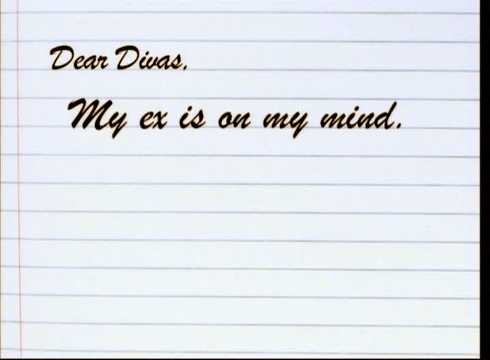 Dear Divas,
My ex is on my mind.